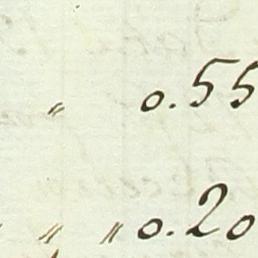 " 0.55
" " " 0.20